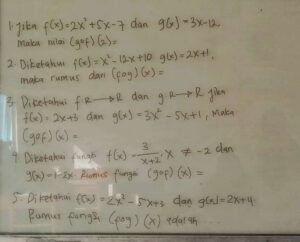 1. Jika f(x)=2x²+5x-7 dan g(x)=3x-12.
Maka nilai (gof)(2)=
2. Diketahui f(x)=x²-12x+10 g(x)=2x+1,
maka rumus dari (fog)(x)=
3. Diketahui f R→R dan g R→R jika
f(x)=2x+3 dan g(x)=3x²-5x+1, Maka
(gof)(x)=
4. Diketahui fungsi f(x) = 3/(x+2), x ≠ -2 dan
g(x)=1-2x. Rumus fungsi (gof)(x)=
5. Diketahui f(x)=2x²-5x+3 dan g(x)=2x+4
Rumus fungsi (fog)(x) adalah....